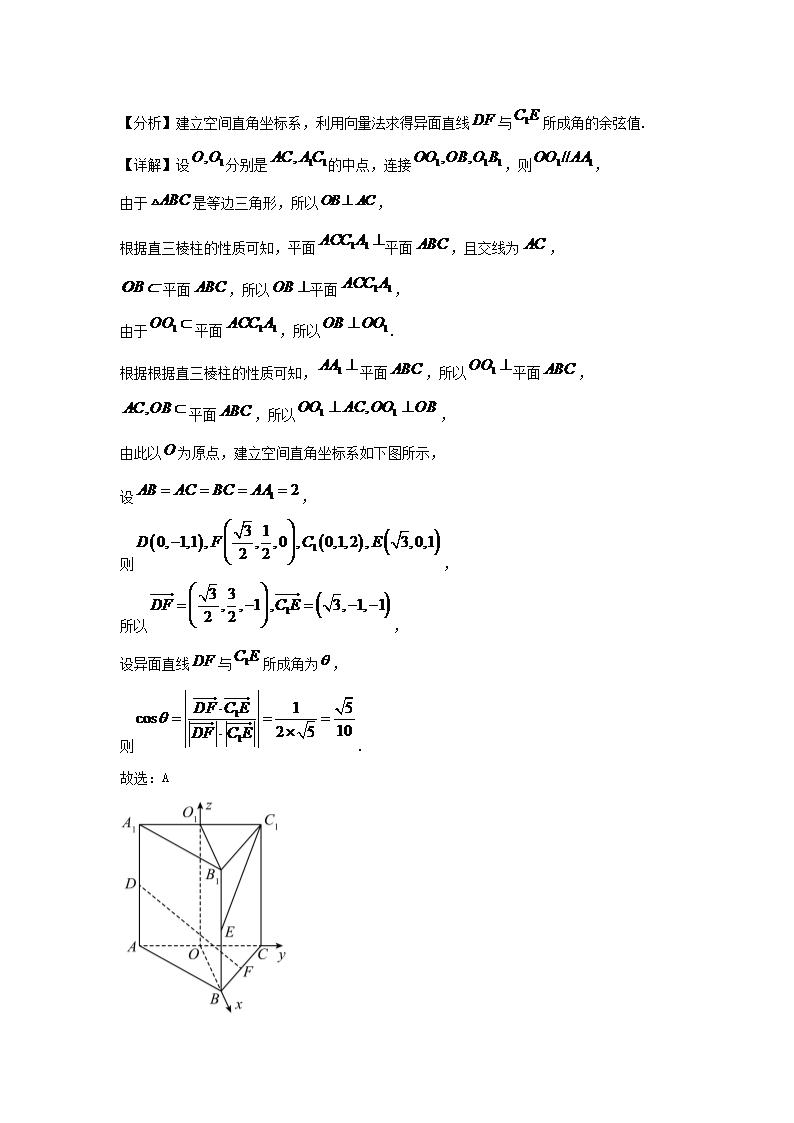 【分析】建立空间直角坐标系，利用向量法求得异面直线DF与C₁E所成角的余弦值.
【详解】设O,O₁分别是AC,A₁C₁的中点，连接OO₁,OB,O₁B₁，则OO₁//AA₁，
由于△ABC是等边三角形，所以OB⊥AC，
根据直三棱柱的性质可知，平面ACC₁A₁⊥平面ABC，且交线为AC，
OB⊂平面ABC，所以OB⊥平面ACC₁A₁，
由于OO₁⊂平面ACC₁A₁，所以OB⊥OO₁.
根据根据直三棱柱的性质可知，AA₁⊥平面ABC，所以OO₁⊥平面ABC，
AC,OB⊂平面ABC，所以OO₁⊥AC,OO₁⊥OB，
由此以O为原点，建立空间直角坐标系如下图所示，
设AB=AC=BC=AA₁=2，
则D(0,−1,1),F(√3/2,1/2,0),C₁(0,1,2),E(√3,0,1)，
所以DF→=(√3/2,3/2,−1),C₁E→=(√3,−1,−1)，
设异面直线DF与C₁E所成角为θ，
则cosθ=|DF→·C₁E→/|DF→|·|C₁E→||=1/(2×√5)=√5/10.
故选：A
O₁ z
A₁ C₁
B₁
D
E
A O C y
F
B x